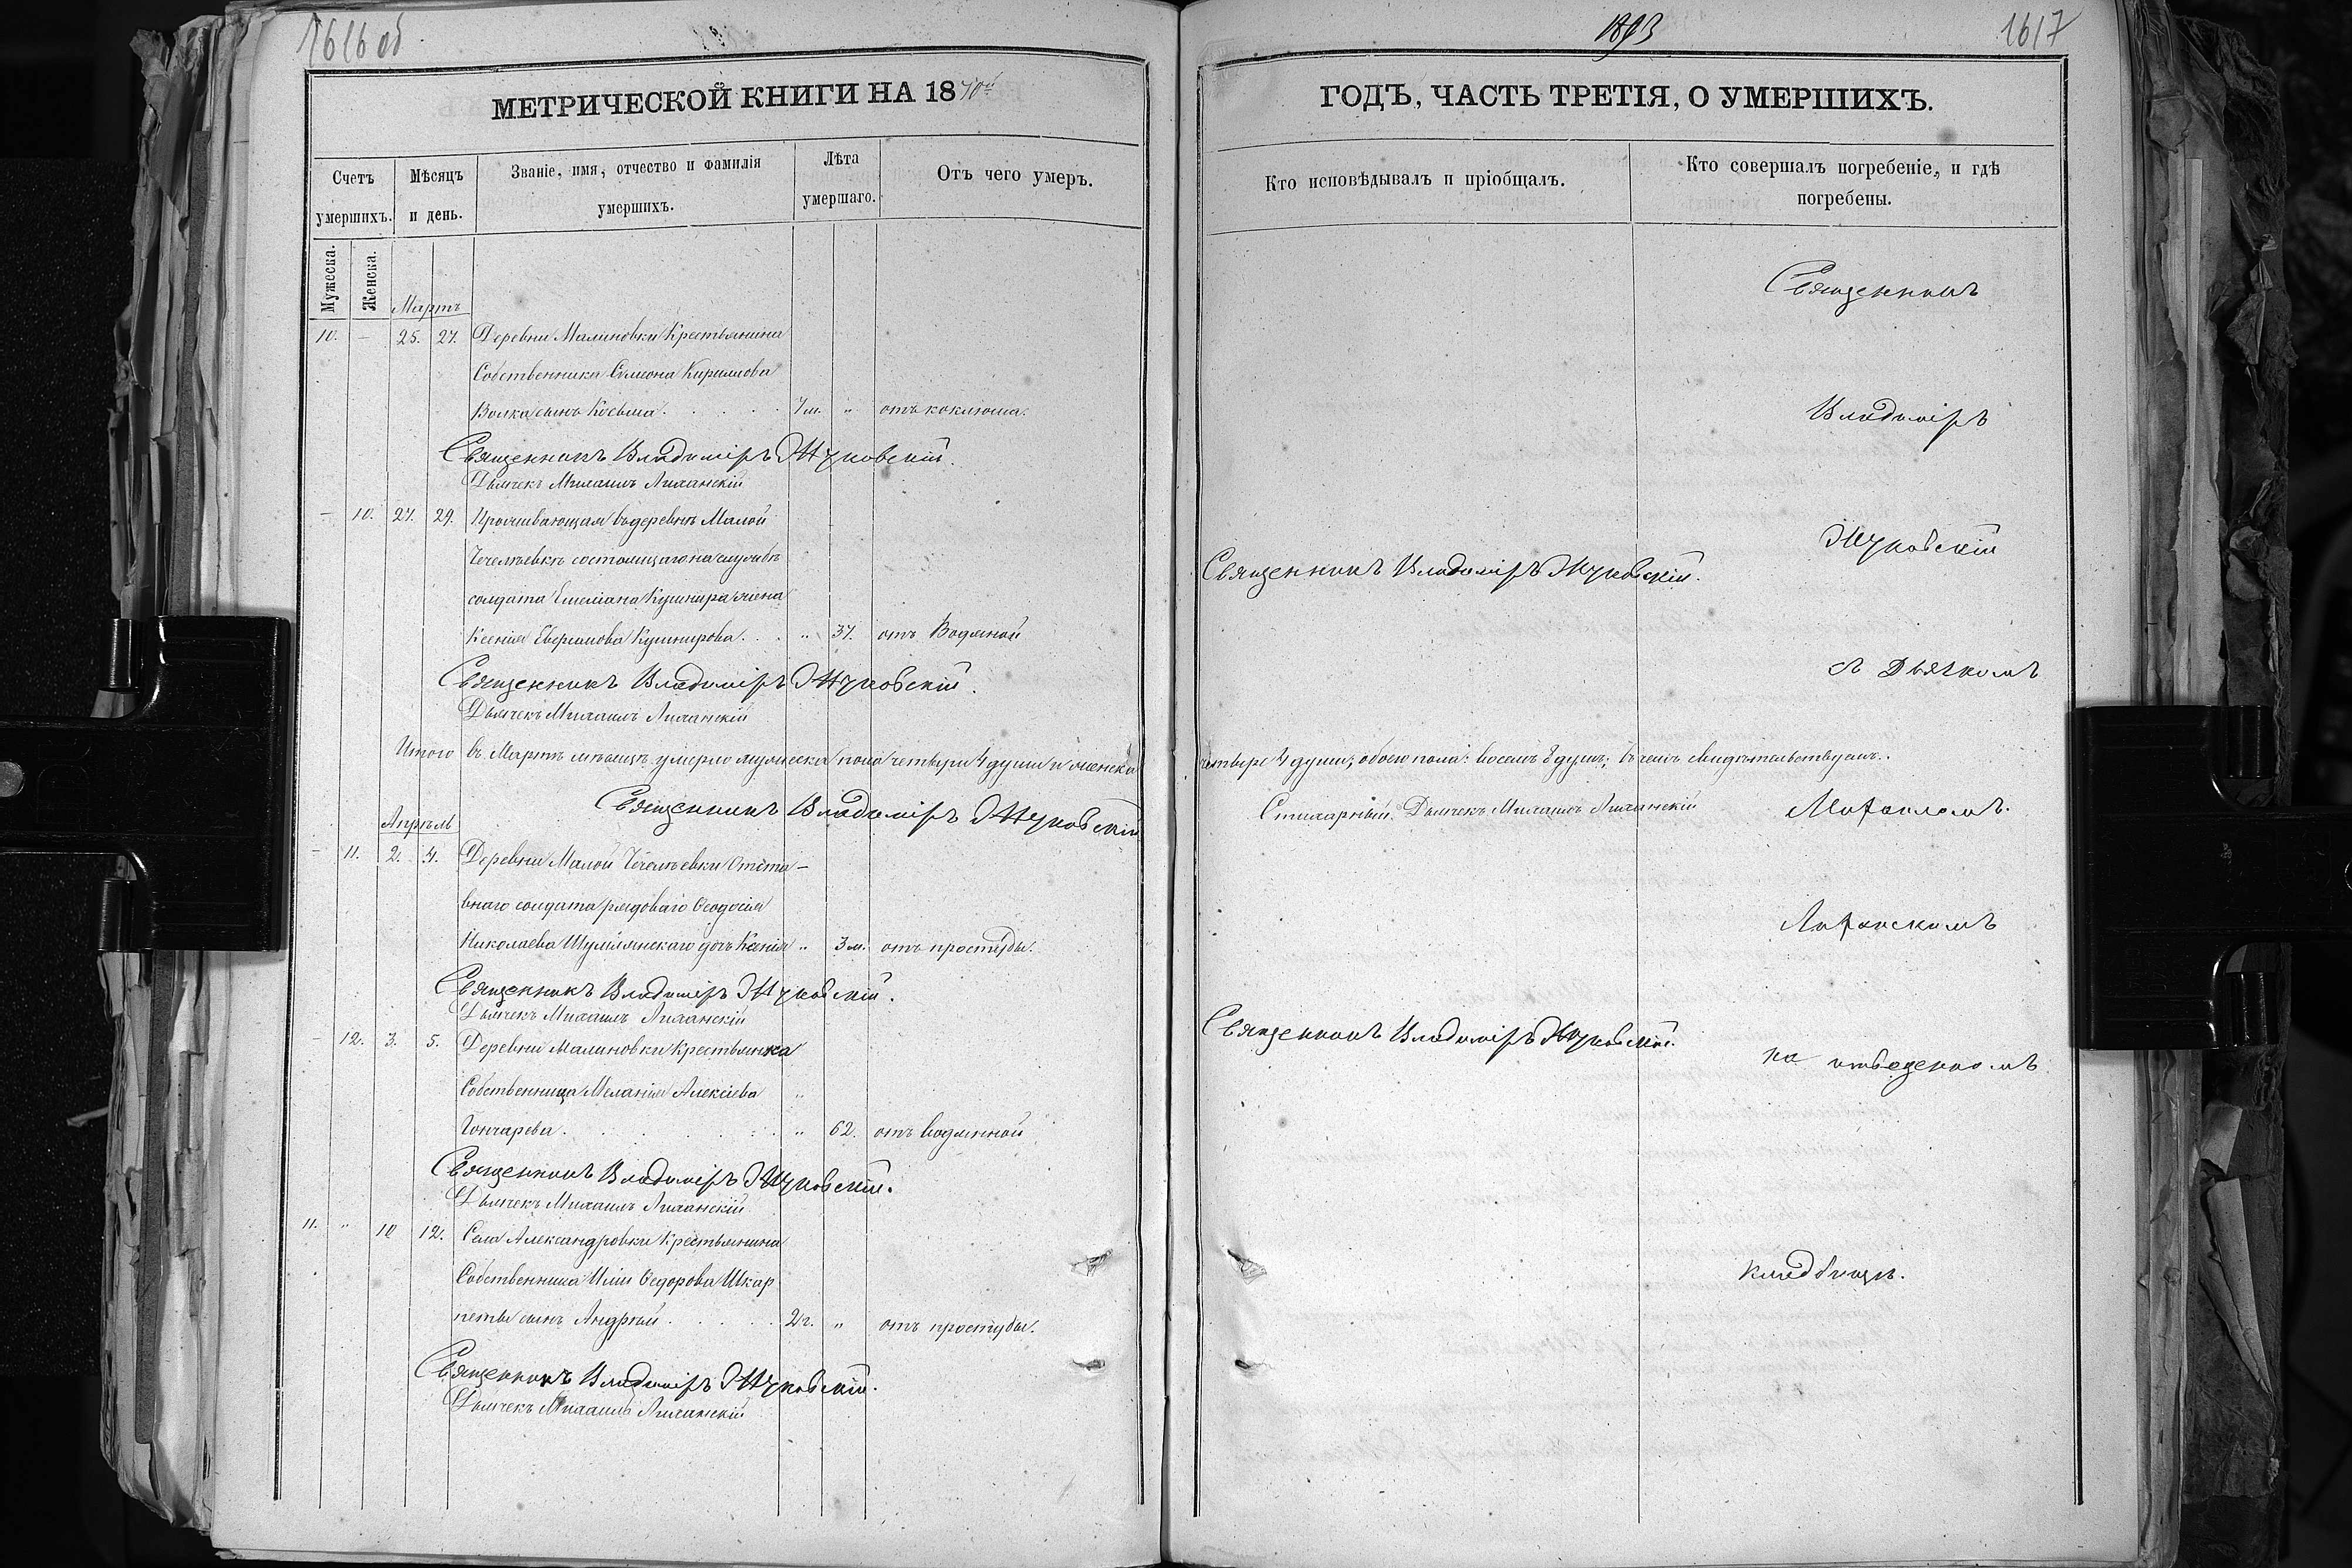 1616 об
МЕТРИЧЕСКОЙ КНИГИ НА 1870й
Счетъ умершихъ.
Мѣсяцъ и день.
Званіе, имя, отчество и фамилія умершихъ.
Лѣта умершаго.
Отъ чего умеръ.
Мужеска.
Женска.
Мартъ
10. – 25. 27. Деревни Малиновки Крестьянина
Собственника Симеона Кириллова
Волка сынъ Косьма . . . . . 7 м. „ отъ коклюша.
Священникъ Владиміръ Жуковскій.
Дьячекъ Михаилъ Лиханскій
– 10. 27. 29. Проживающая въ деревнѣ Малой
Чечелѣевкѣ состоящаго на службѣ
солдата Емеліана Кушнира жена
Ксенія Кушнирова. . . „ 37. отъ Водяной
Священникъ Владиміръ Жуковскій.
Дьячекъ Михаилъ Лиханскій
Итого въ Мартѣ мѣсяцѣ умерло мужеска пола четыре 4 души и женска
Священникъ Владиміръ Жуковскій
Апрѣль
– 11. 2. 4. Деревни Малой Чечелѣевки Отста–
внаго солдата рядоваго Ѳеодосія
Николаева Шулянскаго дочь Ксенія „ 3 м. отъ простуды.
Священникъ Владиміръ Жуковскій.
Дьячекъ Михаилъ Лиханскій
– 12. 3. 5. Деревни Малиновки Крестьянка
Собственница Меланія Алексіева „
Гончарева . . . . . „ 62. отъ водянной
Священникъ Владиміръ Жуковскій.
Дьячекъ Михаилъ Лиханскій
11. „ 10 12. Села Александровки Крестьянина
Собственника Иліи Ѳедорова Шкар
петы сынъ Андрей . . . . . 2 г. „ отъ простуды.
Священникъ Владиміръ Жуковскій.
Дьячекъ Михаилъ Лиханскій
1893
1617
ГОДЪ, ЧАСТЬ ТРЕТІЯ, О УМЕРШИХЪ.
Кто исповѣдывалъ и пріобщалъ.
Кто совершалъ погребеніе, и гдѣ
погребены.
Священникъ
Владиміръ
Жуковскій
Священникъ Владиміръ Жуковскій.
съ Дьячкомъ
четыре 4 души; обоего пола: восемь 8 душъ; въ чемъ свидѣтельствуемъ.
Стихарный Дьячекъ Михаилъ Лиханскій
Михаиломъ.
Лиханскимъ
Священникъ Владиміръ Жуковскій.
на отведенномъ
кладбищѣ.